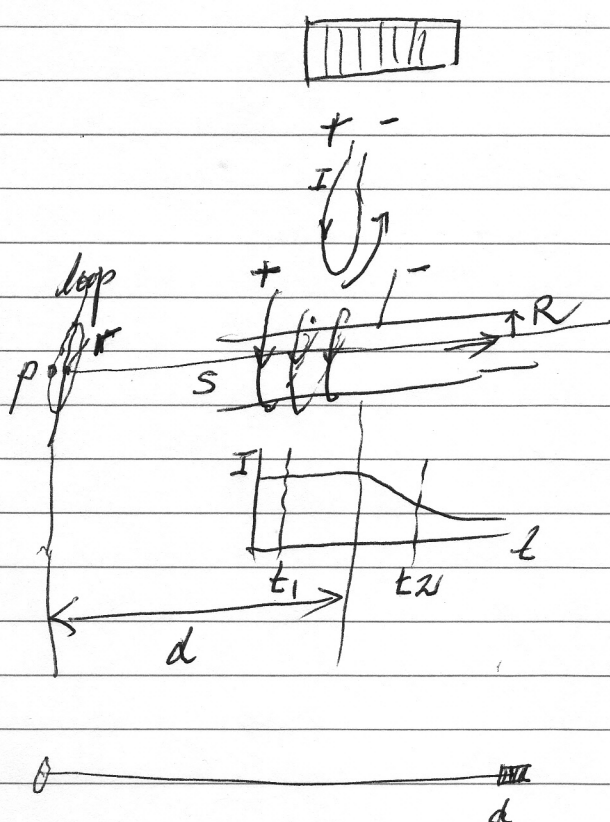 + -
I
loop
+ -
R
r
P
S
I
t
t1 t2
d
d